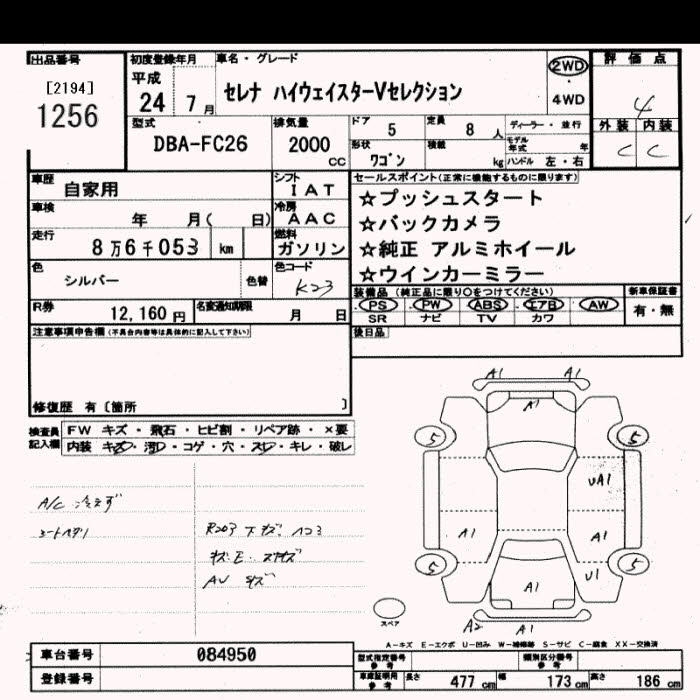 出品番号 初度登録年月 車名・グレード 評価点
[2194] 平成 セレナ ハイウェイスターVセレクション 2WD 4
1256 24 7月 4WD
型式 排気量 ドア 5 定員 8人 ディーラー・並行 外装 内装
DBA-FC26 2000cc 形状 ワゴン 積載 kg モデル年式 年 ハンドル 左・右 C C
車歴 自家用 シフト IAT セールスポイント(正常に機能するものに限ります)
車検 年 月( 日) 冷房 AAC ☆プッシュスタート
走行 8万6千053 km 燃料 ガソリン ☆バックカメラ
☆純正 アルミホイール
色 シルバー 色替 色コード K23 ☆ウインカーミラー
R券 12,160円 名変通知期限 月 日
装備品(純正品に限り○をつけてください) 新車保証書
PS PW ABS エアB AW 有・無
SR ナビ TV カワ
注意事項申告欄(不具合内容等は具体的に記入して下さい) 後日品
修復歴 有〔箇所 〕
検査員記入欄 FW キズ・飛石・ヒビ割・リペア跡・×要
内装 キズ・汚レ・コゲ・穴・スレ・キレ・破レ
A/C 冷えず
シートヘタリ
AV キズ
A1 A1
A1
5 5
UA1
A1 A1
5 5
A1 U1
スペア
A2 A1
A-キズ E-エクボ U-凹み W-補修跡 S-サビ C-腐食 XX-交換済
車台番号 084950 型式指定番号 参考 類別区分番号 参考
登録番号 車庫証明用 参考 長さ 477cm 幅 173cm 高さ 186cm